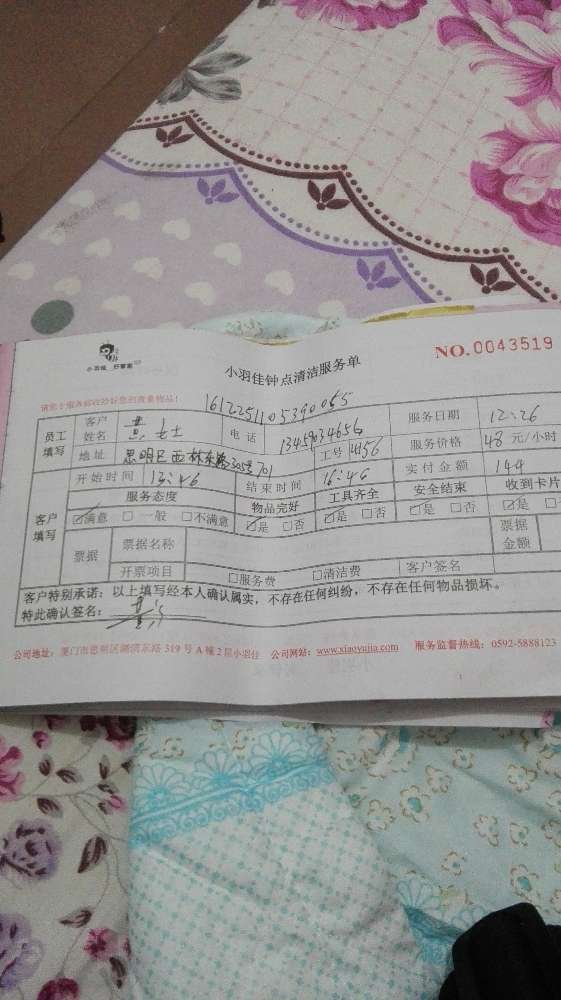 小羽佳 好管家
小羽佳钟点清洁服务单
NO.0043519
1612251105390065
员工填写 客户姓名 黄女士 电话 13459034656 服务日期 12:26
地址 思明区西林东路305号701 工号 4156 服务价格 48元/小时
客户填写 开始时间 13:46 结束时间 16:46 实付金额 144
服务态度 物品完好 工具齐全 安全结束 收到卡片
☑满意 □一般 □不满意 ☑是 □否 ☑是 □否 ☑是 □否 ☑是
票据 票据名称 票据金额
开票项目 □服务费 □清洁费 客户签名
客户特别承诺：以上填写经本人确认属实，不存在任何纠纷，不存在任何物品损坏。
特此确认签名： 黄
公司地址：厦门市思明区湖滨东路 319 号 A 幢 2 层小羽佳 公司网站：www.xiaoyujia.com 服务监督热线：0592-5888123